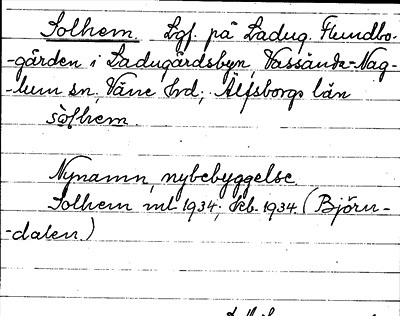 Solhem. Lgf. på Ladug. Flundbo-
-gården i Ladugårdsbyn, Vassända-Nag-
-lum sn, Väne hrd; Älfsborgs län
sòlhem.
Nynamn, nybebyggelse.
Solhem ml 1934; kb. 1934. (Björn-
-dalen.)